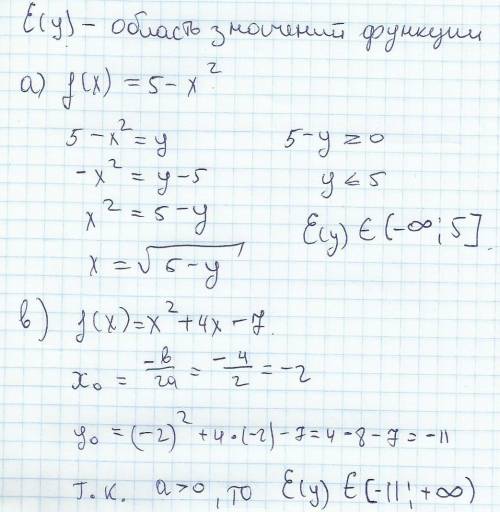 E(y) – область значений функции
а) f(x) = 5 – x²
5 – x² = y 5 – y ≥ 0
–x² = y – 5 y ≤ 5
x² = 5 – y E(y) ∈ (–∞; 5].
x = √(5 – y)
в) f(x) = x² + 4x – 7.
x₀ = –в/2а = –4/2 = –2
y₀ = (–2)² + 4·(–2) – 7 = 4 – 8 – 7 = –11
т.к. а > 0, то E(y) ∈ (–11; +∞)